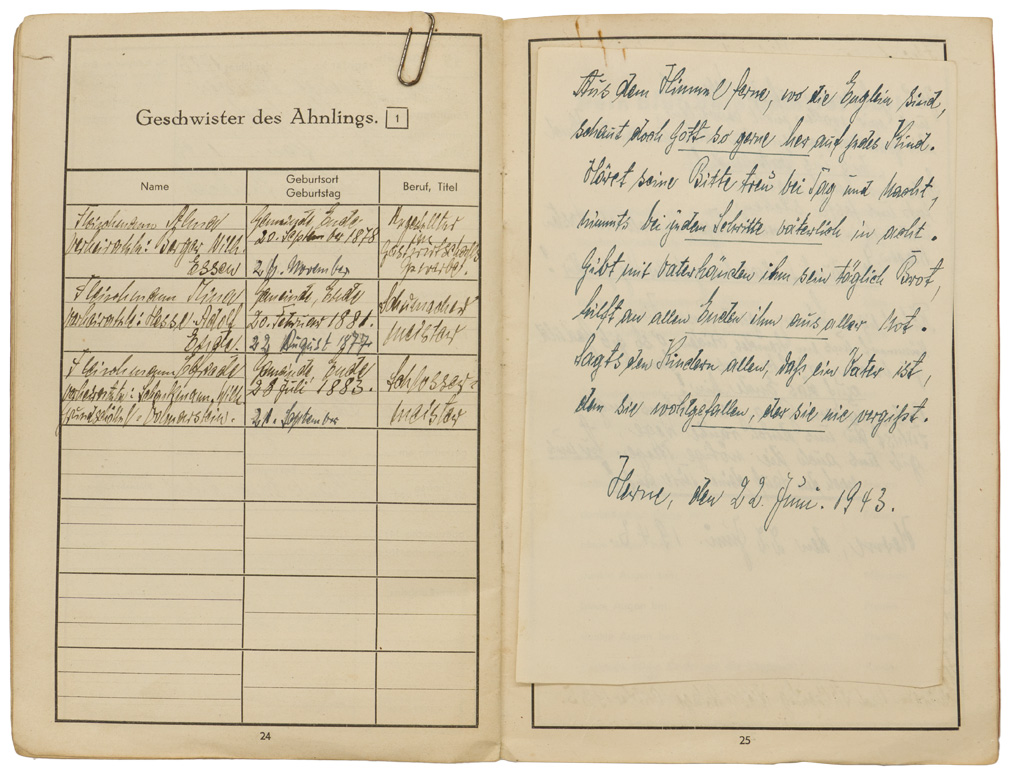 Geschwister des Ahnlings. 1
Name
Geburtsort
Geburtstag
Beruf, Titel
Gemeinde, Ende
20. September 1878
Angestellter
für
verheiratete: Berger Wilh.
Essen
24. November
Gemeinde, Ende
20. Februar 1881.
22. August 1874.
Schuhmacher
meister
verheiratete: Hassel Adolf
Ende.
Gemeinde, Ende
28 Juli 1883.
21. September
Schlosser-
meister
24
Aus dem Himmel ferne, wo die Englein sind,
schaut doch Gott so gerne her auf jedes Kind.
Höret seine Bitte treu bei Tag und Nacht,
nimmts bei jedem Schritte väterlich in acht.
Gibt mit Vaterhänden ihm sein täglich Brot,
hilft an allen Enden ihm aus aller Not.
Sagts den Kindern allen, daß ein Vater ist,
dem sie wohlgefallen, der sie nie vergißt.
Herne, den 22. Juni. 1943.
25